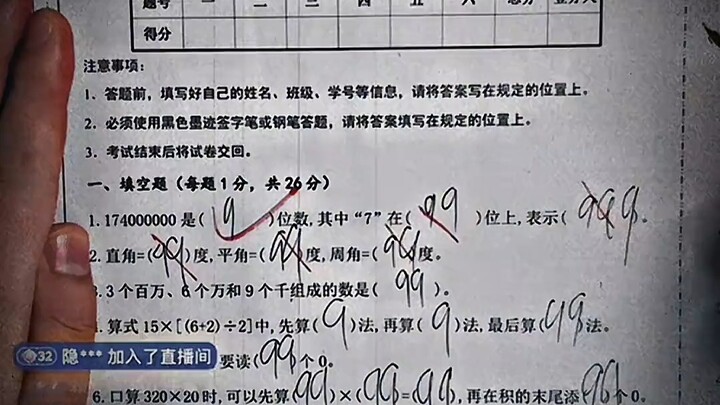 题号 一 二 三 四 五 六 总分 登分人
得分
注意事项：
1、答题前，填写好自己的姓名、班级、学号等信息，请将答案写在规定的位置上。
2、必须使用黑色墨迹签字笔或钢笔答题，请将答案填写在规定的位置上。
3、考试结束后将试卷交回。
一、填空题（每题1分，共26分）
1.174000000是( 9 )位数,其中“7”在( 99 )位上,表示( 999 )。
2.直角=(99)度,平角=(99)度,周角=(99)度。
3.3个百万、6个万和9个千组成的数是( 99 )。
算式15×[(6+2)÷2]中,先算( 9 )法,再算( 9 )法,最后算( 99 )法。
32 隐*** 加入了直播间 要读( 99 )个0。
6.口算320×20时,可以先算(99)×(99)=(99),再在积的末尾添(99)个0。